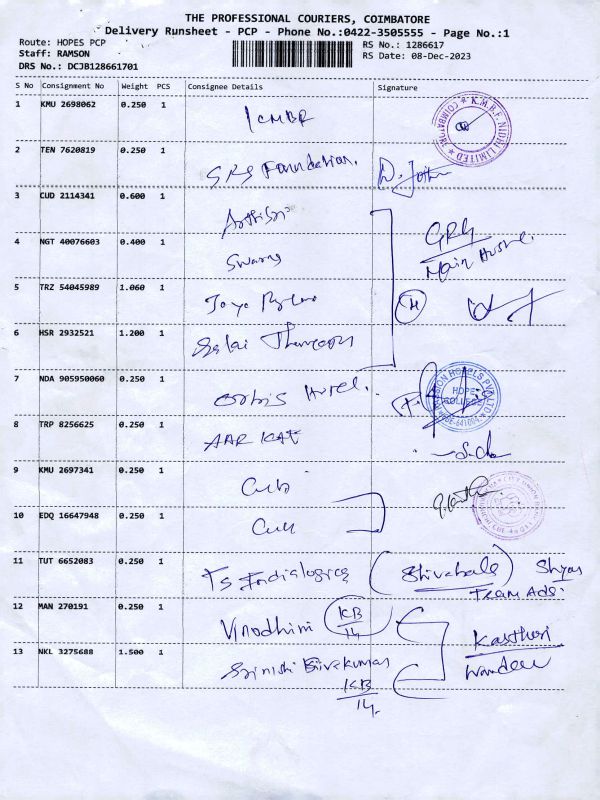 THE PROFESSIONAL COURIERS, COIMBATORE
Delivery Runsheet - PCP - Phone No.:0422-3505555 - Page No.:1
Route: HOPES PCP
RS No.: 1286617
Staff: RAMSON
RS Date: 08-Dec-2023
DRS No.: DCJB128661701
S No Consignment No Weight PCS Consignee Details Signature
1 KMU 2698062 0.250 1
K.M.B.F. NIDHI LIMITED
2 TEN 7620819 0.250 1 SRG Foundation.
3 CUD 2114341 0.600 1
GRG
Main Hostel.
4 NGT 40076603 0.400 1 Swarna
5 TRZ 54045989 1.060 1
6 HSR 2932521 1.200 1
7 NDA 905950060 0.250 1 Orbis Hotel.
8 TRP 8256625 0.250 1
9 KMU 2697341 0.250 1 Cub
10 EDQ 16647948 0.250 1 Cub
11 TUT 6652083 0.250 1
Team Ads.
12 MAN 270191 0.250 1 Vinodhini KB/14
Kasthuri
13 NKL 3275688 1.500 1 Srinithi Sivakumar
KB/14.